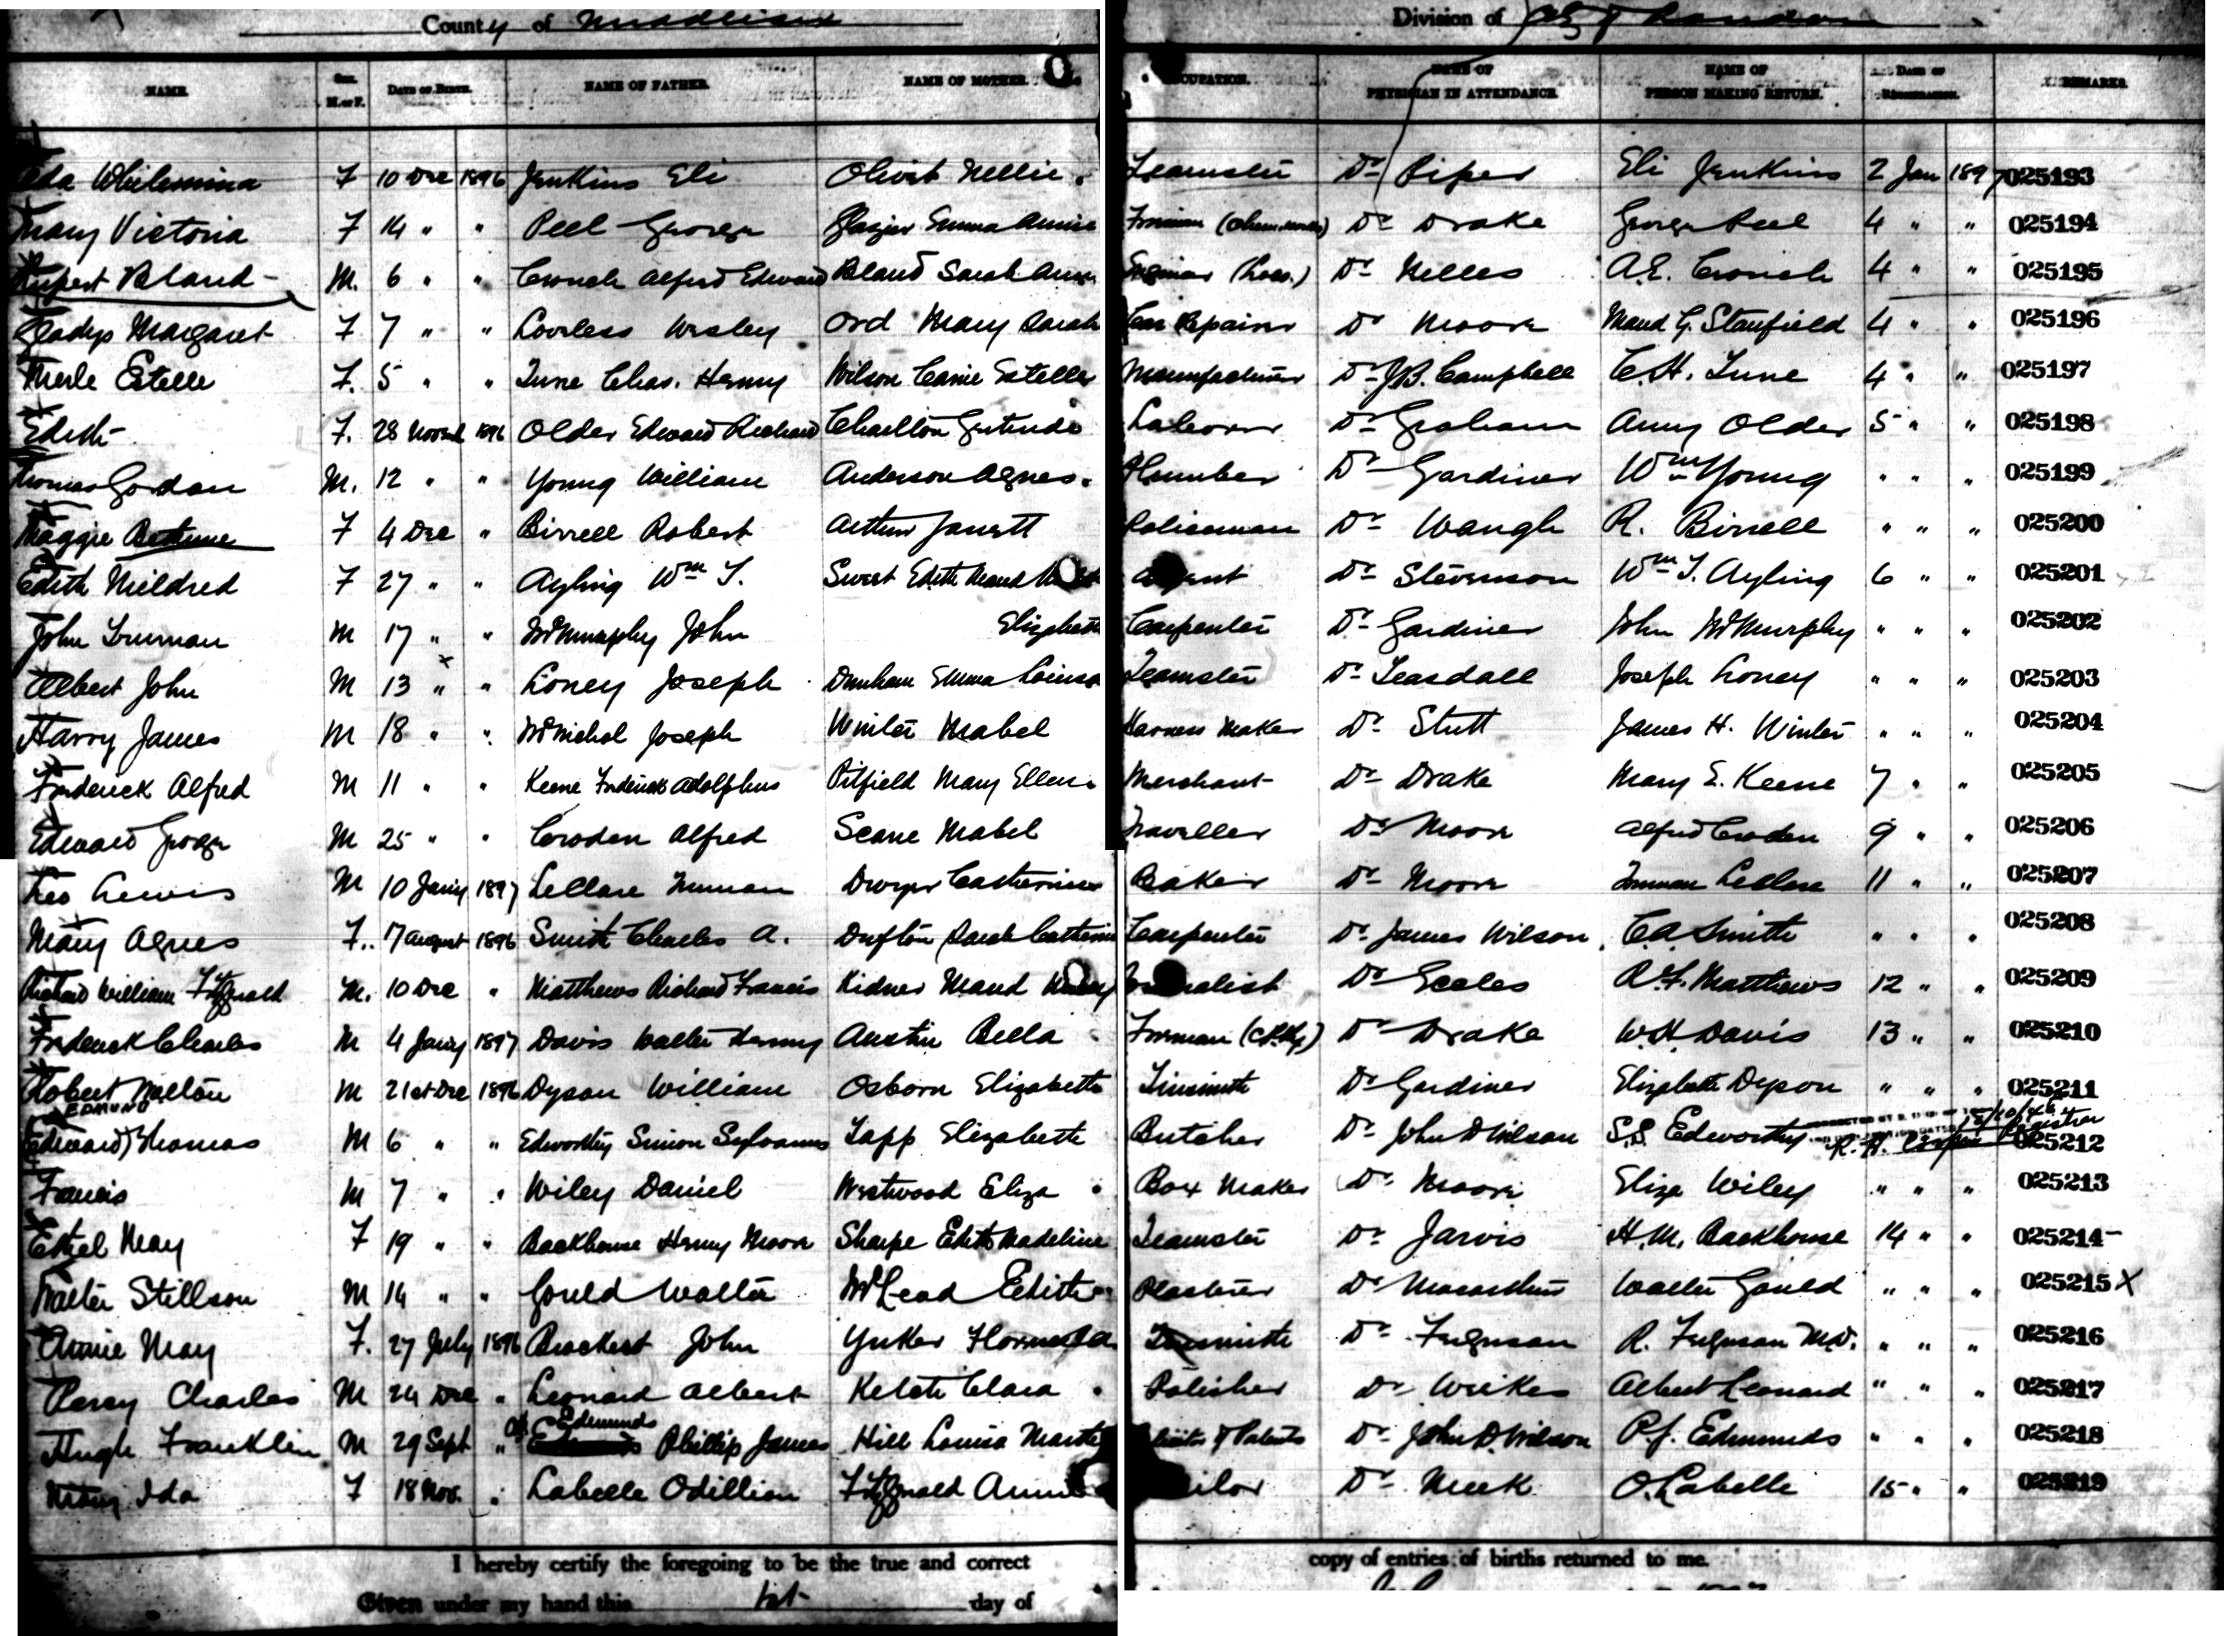 County of Middlesex Division of City of London
NAME. Sex. M. or F. DATE OF BIRTH. NAME OF FATHER. NAME OF MOTHER. OCCUPATION. NAME OF PHYSICIAN IN ATTENDANCE. NAME OF PERSON MAKING RETURN. DATE OF REGISTRATION. REMARKS.
Ida Whilemina F 10 Dec 1896 Jenkins Eli Olivet Nellie Teamster Dr Piper Eli Jenkins 2 Jan 1897 025193
Mary Victoria F 14 " " Peel George Glazier Emma Annie Foreman (Chem. works) Dr Drake George Peel 4 " " 025194
Rupert Bland M. 6 " " Crouch Alfred Edward Bland Sarah Ann Engineer (Loco.) Dr Nelles A.E. Crouch 4 " " 025195
Gladys Margaret F 7 " " Loveless Wesley Ord Mary Sarah Car Repairer Dr Moore Maud G. Stanfield 4 " " 025196
Merle Estelle F. 5 " " Tune Chas. Henry Wilson Carrie Estelle Manufacturer Dr J.B. Campbell C.H. Tune 4 " " 025197
Edith F. 28 Novemb 1896 Older Edward Richard Charlton Gertrude Laborer Dr Graham Amy Older 5 " " 025198
Thomas Gordon M. 12 " " Young William Anderson Agnes Plumber Dr Gardiner Wm Young " " " 025199
Maggie Bethune F 4 Dec " Birrell Robert Arthur Janett Policeman Dr Waugh R. Birrell " " " 025200
Edith Mildred F 27 " " Ayling Wm T. Sweet Edith Maud Agent Dr Stevenson Wm T. Ayling 6 " " 025201
John Truman M 17 " " McMurphy John Elizabeth Carpenter Dr Gardiner John McMurphy " " " 025202
Albert John M 13 " " Loney Joseph Dunham Emma Louisa Teamster Dr Teasdall Joseph Loney " " " 025203
Harry James M 18 " " McNichol Joseph Winter Mabel Harness Maker Dr Stutt James H. Winter " " " 025204
Frederick Alfred M 11 " " Keene Frederick Adolphus Pitfield Mary Ellen Merchant Dr Drake Mary E. Keene 7 " " 025205
Edward George M 25 " " Croden Alfred Scane Mabel Traveller Dr Moore Alfred Croden 9 " " 025206
Leo Lewis M 10 Jany 1897 LeClare Truman Dwyer Catherine Baker Dr Moore Truman LeClare 11 " " 025207
Mary Agnes F. 17 August 1896 Smith Charles A. Dufton Sarah Catherine Carpenter Dr James Wilson C.A. Smith " " " 025208
Richard William Fitzgerald M. 10 Dec " Matthews Richard Francis Kidner Maud Journalist Dr Eccles R.F. Matthews 12 " " 025209
Frederick Charles M 4 Jany 1897 Davis Walter Henry Austin Bella Foreman Dr Drake W.H. Davis 13 " " 025210
Robert Nelton M 21st Dec 1896 Dyson William Osborn Elizabeth Tinsmith Dr Gardiner Elizabeth Dyson " " " 025211
EDMUND
(Edward) Thomas M 6 " " Edworthy Simon Sylvanus Tapp Elizabeth Butcher Dr John D Wilson S.S. Edworthy 025212
Francis M 7 " " Wiley Daniel Westwood Eliza Box Maker Dr Moore Eliza Wiley " " " 025213
Ethel May F 19 " " Backhouse Henry Moore Sharpe Edith Madeline Teamster Dr Jarvis H.M. Backhouse 14 " " 025214
Walter Stillson M 14 " " Gould Walter McLeod Edith Plasterer Dr Macarthur Walter Gould " " " 025215 X
Annie May F. 27 July 1896 Brackert John Yuker Tinsmith Dr Ferguson R. Ferguson M.D. " " " 025216
Percy Charles M 24 Dec " Leonard Albert Kelch Clara Polisher Dr Weekes Albert Leonard " " " 025217
Hugh Franklin M 29 Sept " Edmunds Phillip James Hill Louisa Martha Dr John D. Wilson P.J. Edmunds " " " 025218
Mary Ida F 18 Nov. " Labelle Odillion Fitzgerald Annie Tailor Dr Meek O. Labelle 15 " " 025219
I hereby certify the foregoing to be the true and correct copy of entries of births returned to me.
Given under my hand this 1st day of